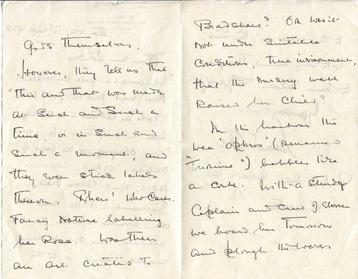 Gods themselves.
However, they tell us that
"this and that was made
at such and such a
time or in such and
such a movement, and
they even stick labels
thereon. Who Cares.
Fancy Nature labelling
her Rose. Was then
an art created to
Bradshaw? Or was it
not under suitable
conditions, time, environment,
that the nursing well
Raised her Child?
In the harbour the
wee "Sphos" (Renamed
) bobbles like
a cork. With a sturdy
Captain and crew of eleven
we board her tomorrow
and plough the waves